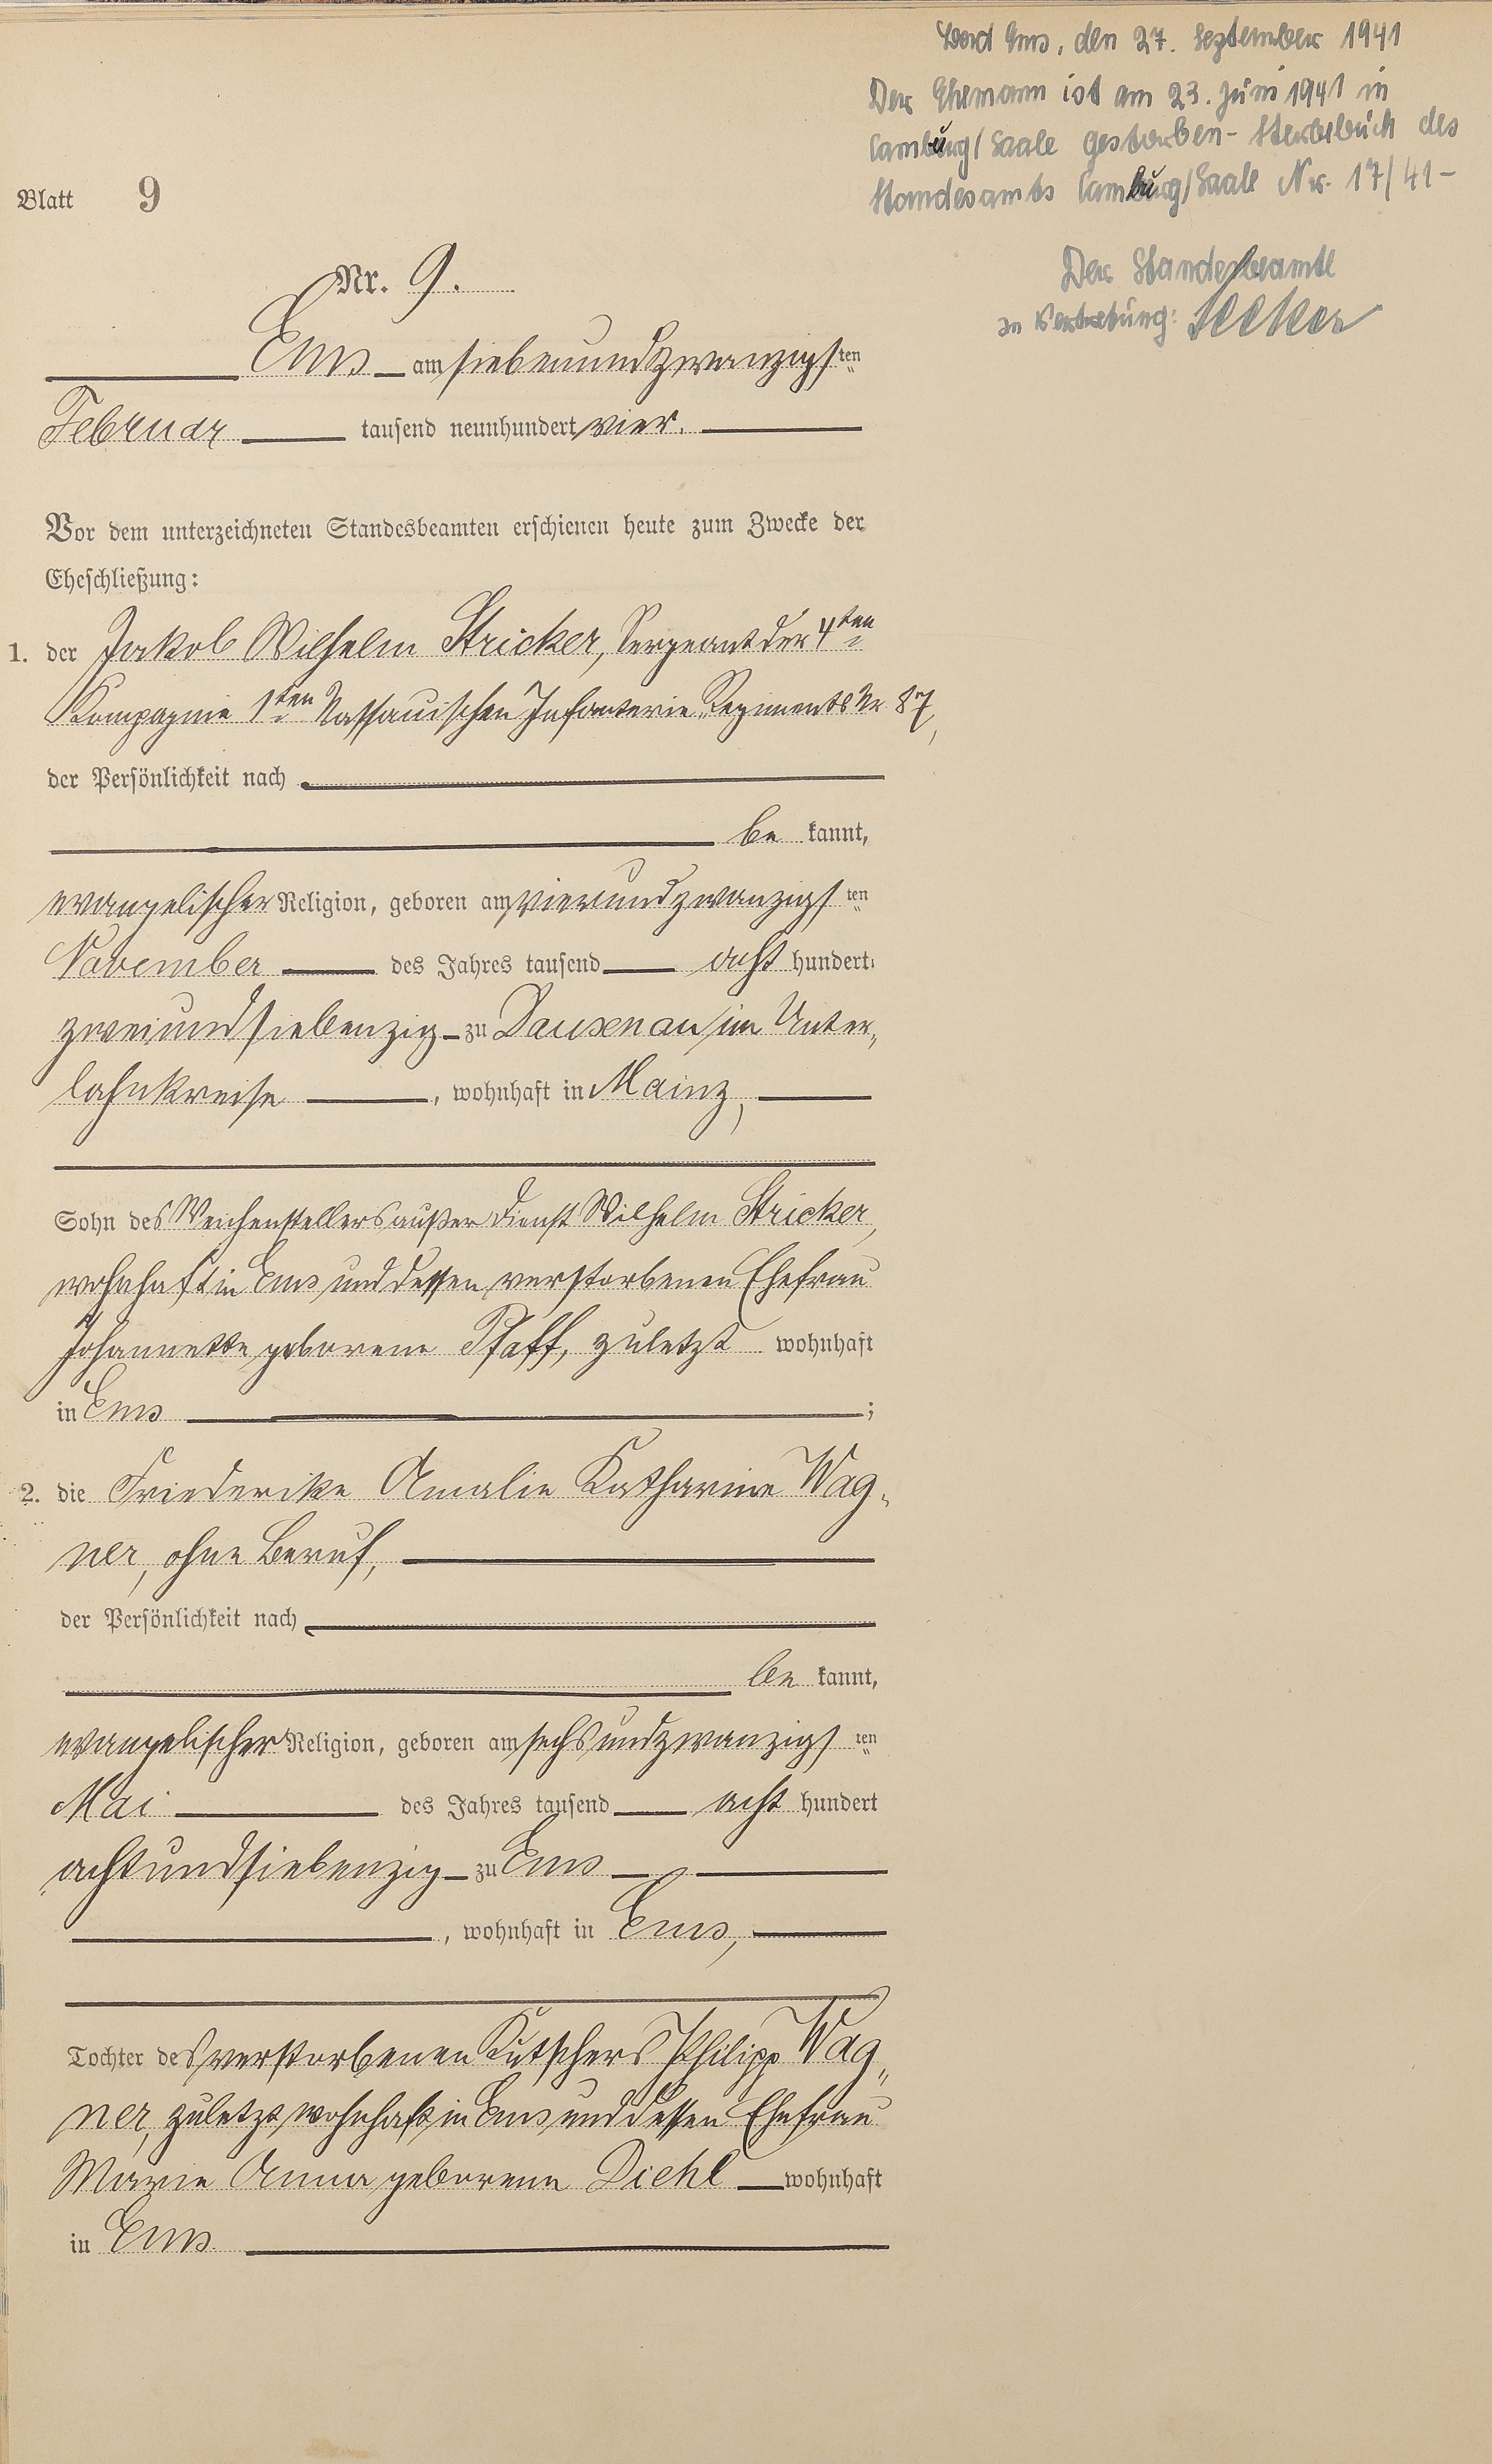 Blatt 9
Nr. 9.
Ems am siebenundzwanzigsten
Februar tausend neunhundert vier.
Vor dem unterzeichneten Standesbeamten erschienen heute zum Zwecke der
Eheschließung:
1. der Jakob Wilhelm Stricker, Sergeant der 4ten
Kompagnie 1ten Nassauischen Infanterie-Regiments Nr 87,
der Persönlichkeit nach
be kannt,
evangelischer Religion, geboren am vierundzwanzigsten
November des Jahres tausend acht hundert
zweiundsiebenzig zu Dausenau im Unter-
lahnkreise, wohnhaft in Mainz,
Sohn des Weichenstellers außer Dienst Wilhelm Stricker,
wohnhaft in Ems und dessen verstorbenen Ehefrau
Johannette geborene Pfaff, zuletzt wohnhaft
in Ems ;
2. die Friederike Amalie Katharine Wag-
ner, ohne Beruf,
der Persönlichkeit nach
be kannt,
evangelischer Religion, geboren am sechsundzwanzigsten
Mai des Jahres tausend acht hundert
achtundsiebenzig zu Ems
, wohnhaft in Ems,
Tochter des verstorbenen Kutschers Philipp Wag-
ner, zuletzt wohnhaft in Ems und dessen Ehefrau
Marie Anna geborene Diehl wohnhaft
in Ems.
Bad Ems, den 27. September 1941
Der Ehemann ist am 23. Juni 1941 in
Camburg/Saale gestorben - Sterbebuch des
Standesamts Camburg/Saale Nr. 17/41 -
Der Standesbeamte
In Vertretung: